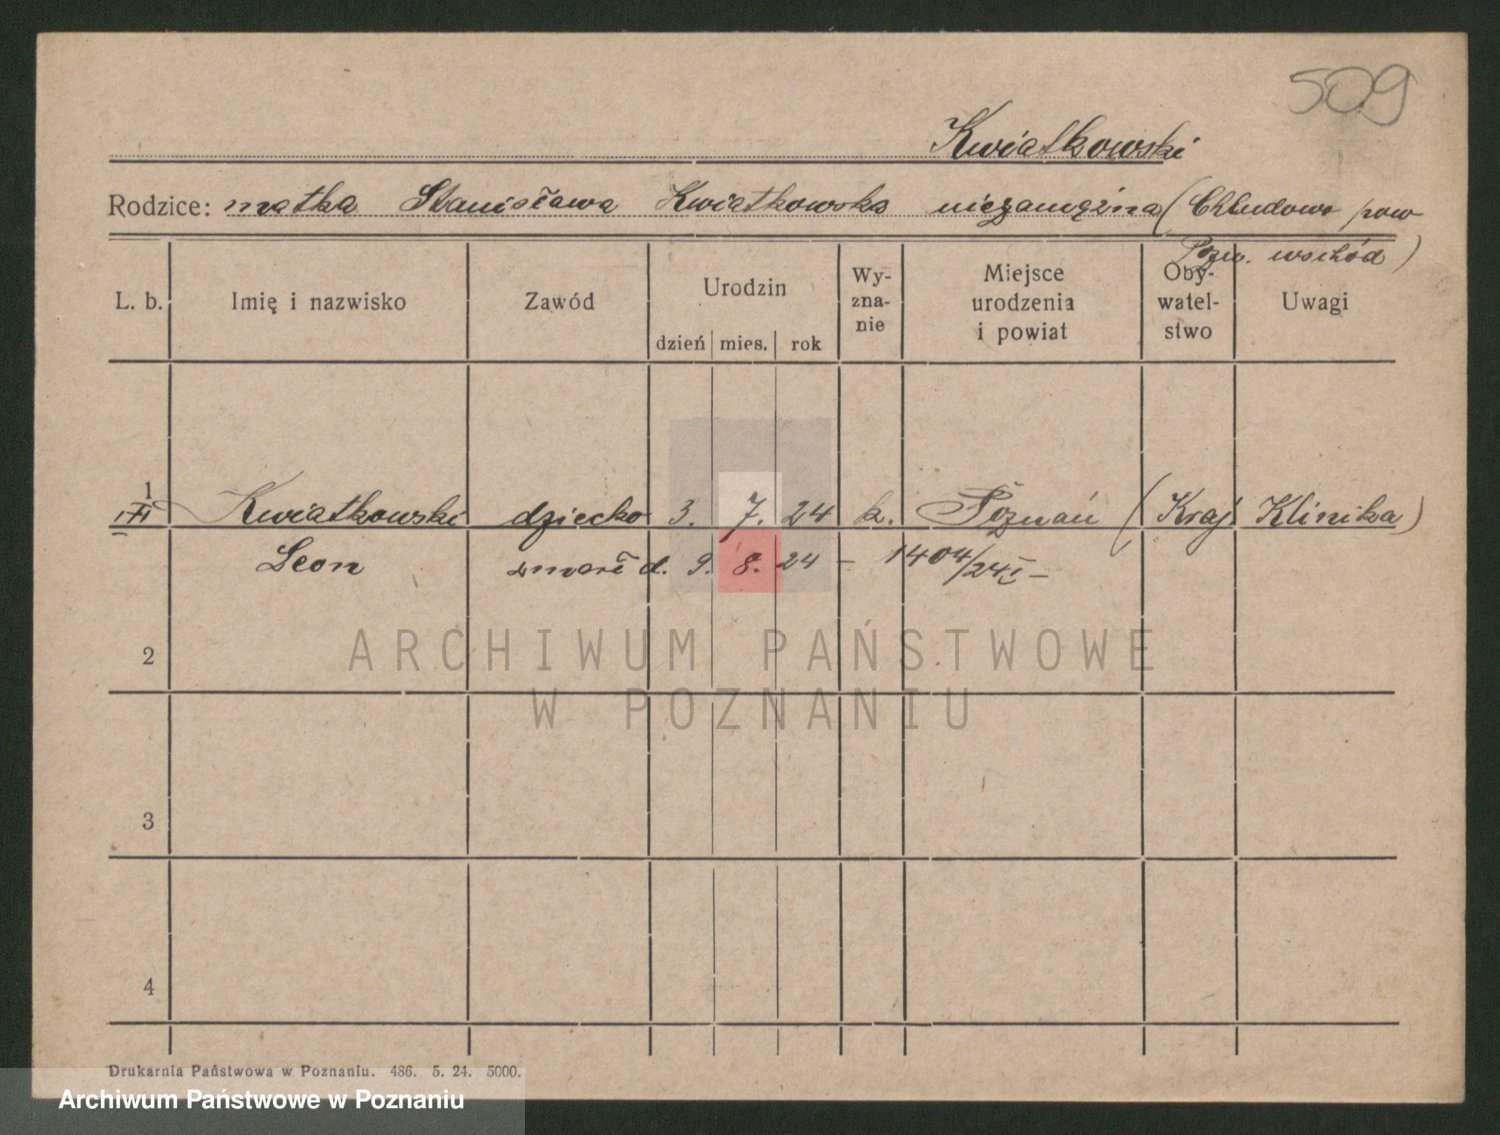 509
Kwiatkowski
Rodzice: matka Stanisława Kwiatkowska niezamężna (Chludowo pow
Pozn. wschód)
L. b. Imię i nazwisko Zawód Urodzin dzień mies. rok Wy-zna-nie Miejsce urodzenia i powiat Oby-watel-stwo Uwagi
1 Kwiatkowski dziecko 3. 7. 24 k. Poznań (Kraj Klinika)
Leon zmarł d. 9. 8. 24 – 1404/24 I –
2
3
4
ARCHIWUM PAŃSTWOWE
W POZNANIU
Drukarnia Państwowa w Poznaniu. 486. 5. 24. 5000.
Archiwum Państwowe w Poznaniu